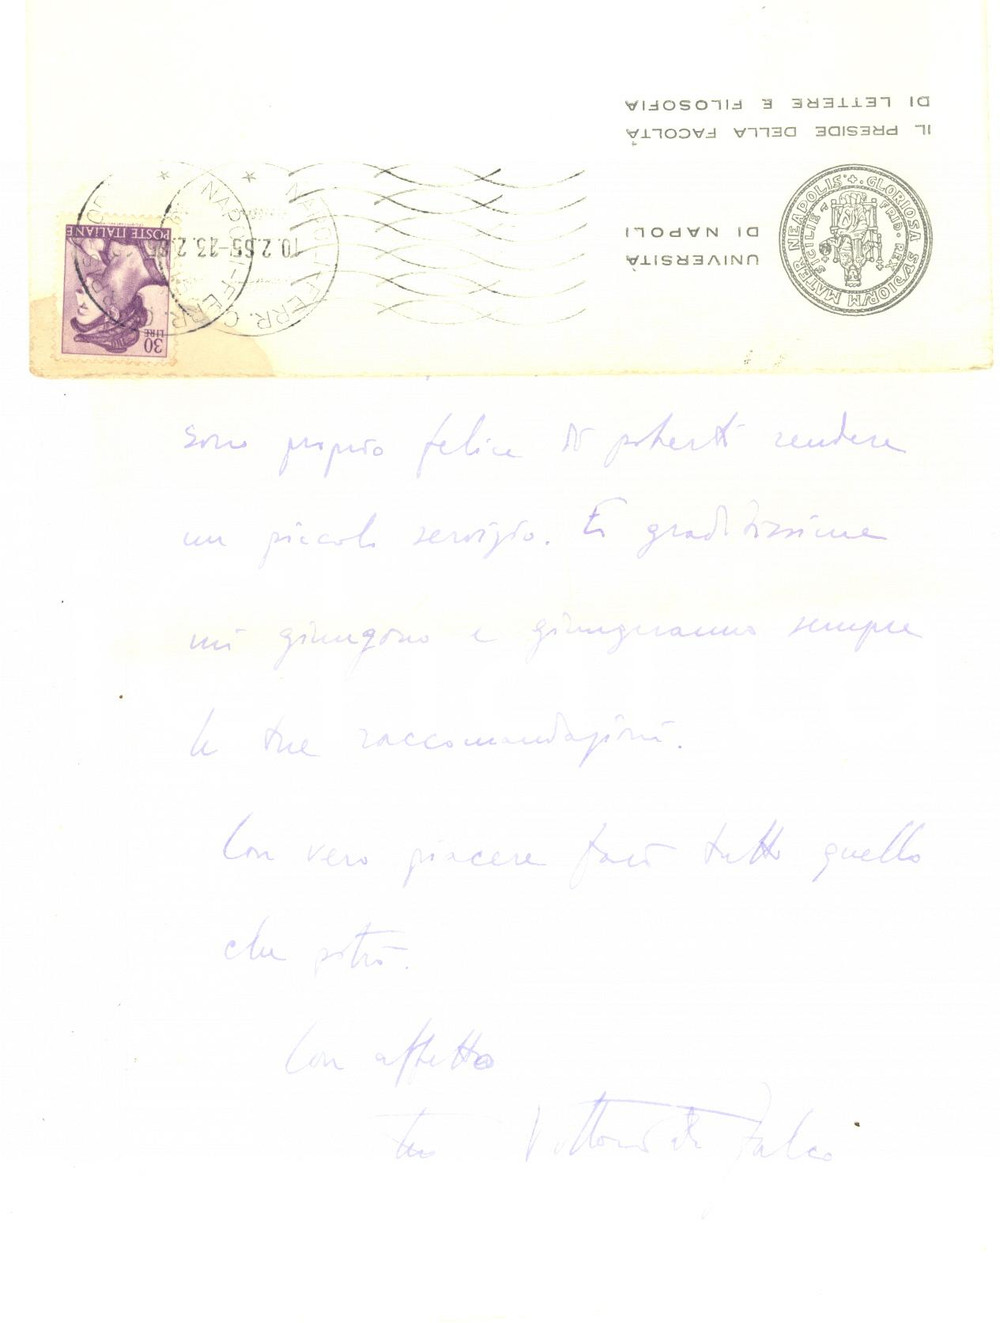 IL PRESIDE DELLA FACOLTÀ
DI LETTERE E FILOSOFIA
UNIVERSITÀ
DI NAPOLI
MATER NEAPOLIS + GLORIOSA
SICILIE FRID. REX
NAPOLI FERR. C
10.2.65-23
NAPOLI-FERR. C
POSTE ITALIANE
LIRE
30
sono proprio felice di poterti rendere
un piccolo servizio. E graditissime
mi giungono e giungeranno sempre
le tue raccomandazioni.
Con vero piacere farò tutto quello
che potrò.
Con affetto
tuo Vittorio De Falco